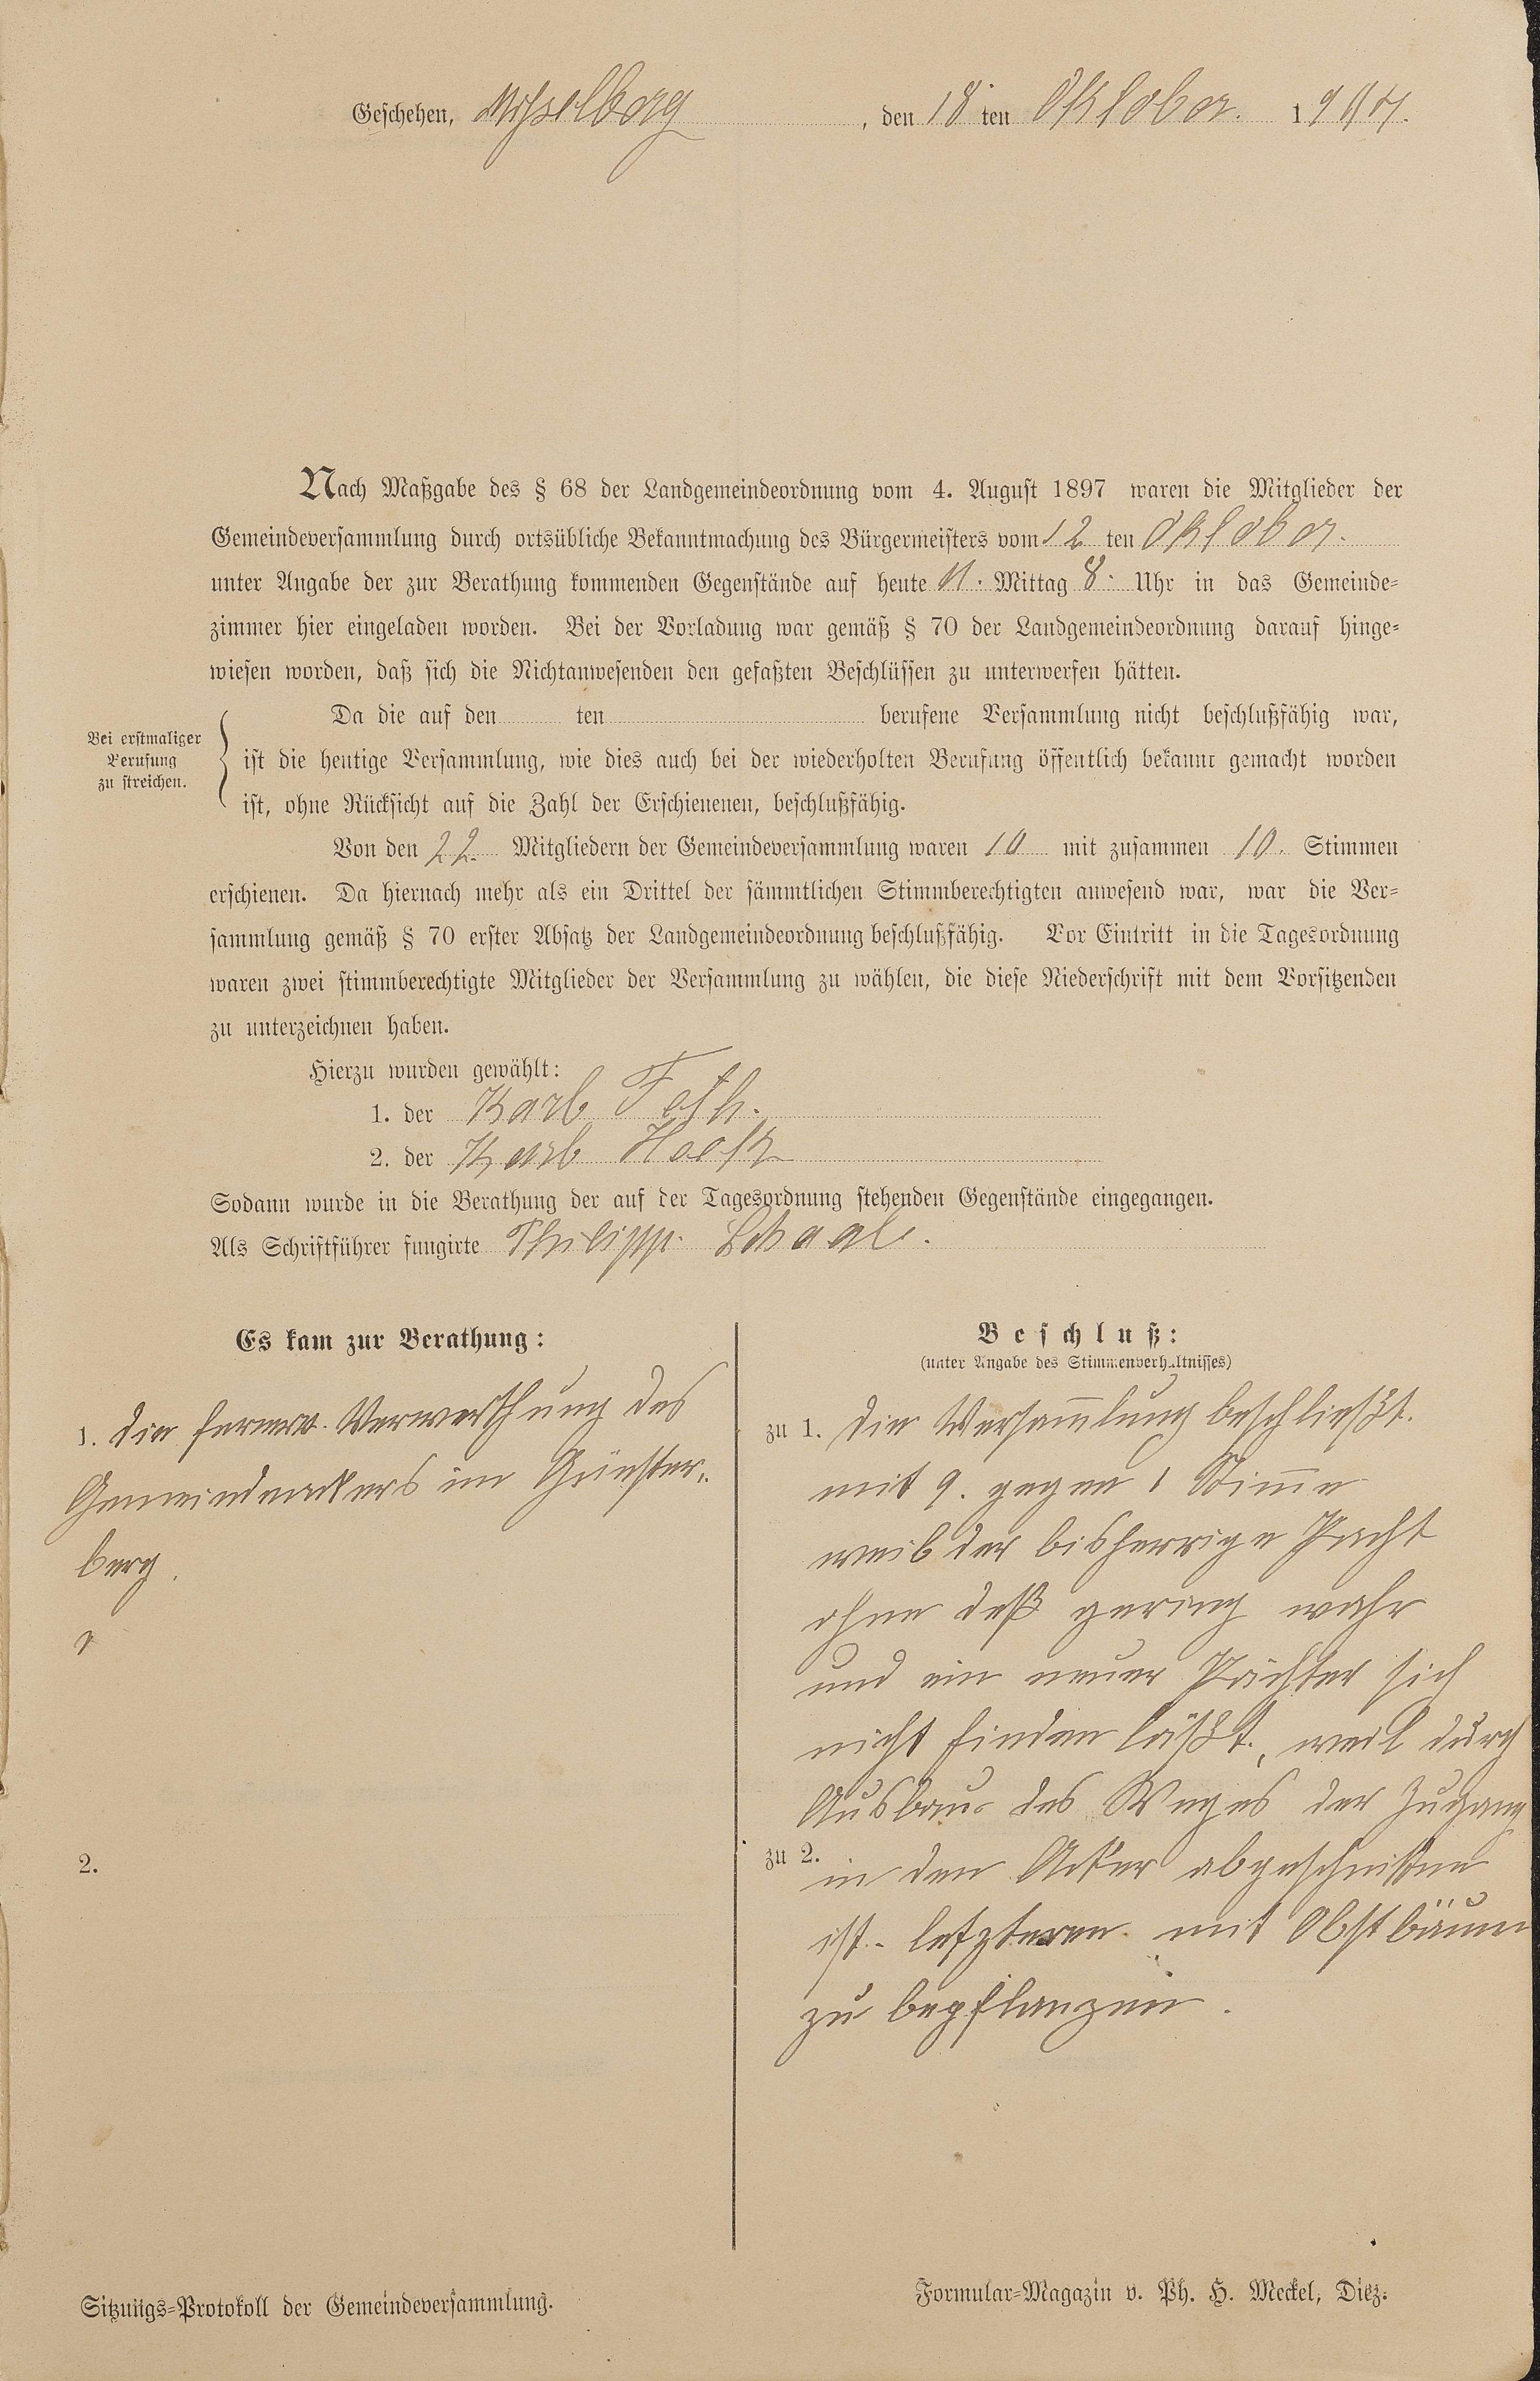 Geschehen, Misselberg, den 18 ten Oktober. 1904.
Nach Maßgabe des § 68 der Landgemeindeordnung vom 4. August 1897 waren die Mitglieder der
Gemeindeversammlung durch ortsübliche Bekanntmachung des Bürgermeisters vom 12 ten Oktober.
unter Angabe der zur Berathung kommenden Gegenstände auf heute N. Mittag 8. Uhr in das Gemeinde-
zimmer hier eingeladen worden. Bei der Vorladung war gemäß § 70 der Landgemeindeordnung darauf hinge-
wiesen worden, daß sich die Nichtanwesenden den gefaßten Beschlüssen zu unterwerfen hätten.
Bei erstmaliger
Berufung
zu streichen.
Da die auf den ten berufene Versammlung nicht beschlußfähig war,
ist die heutige Versammlung, wie dies auch bei der wiederholten Berufung öffentlich bekannt gemacht worden
ist, ohne Rücksicht auf die Zahl der Erschienenen, beschlußfähig.
Von den 22. Mitgliedern der Gemeindeversammlung waren 10 mit zusammen 10. Stimmen
erschienen. Da hiernach mehr als ein Drittel der sämmtlichen Stimmberechtigten anwesend war, war die Ver-
sammlung gemäß § 70 erster Absatz der Landgemeindeordnung beschlußfähig. Vor Eintritt in die Tagesordnung
waren zwei stimmberechtigte Mitglieder der Versammlung zu wählen, die diese Niederschrift mit dem Vorsitzenden
zu unterzeichnen haben.
Hierzu wurden gewählt:
1. der Karl
2. der Karl
Sodann wurde in die Berathung der auf der Tagesordnung stehenden Gegenstände eingegangen.
Als Schriftführer fungirte Philipp.
Es kam zur Berathung:
1. die fernere Verwerthung des
Gemeindeackers im Günster-
berg.
2.
Beschluß:
(unter Angabe des Stimmenverhältnisses)
zu 1. die Versam̅lung beschließt.
mit 9. gegen 1 Stim̅e
weil der bisherrige Pacht
ohne deß gering wahr
und ein neuer Pächter sich
nicht finden läßt, weil durch
Ausbau des Weges der Zugang
zu 2. in den Acker abgeschnitten
ist. letzteren mit Obstbäumen
zu bepflanzen.
Sitzungs-Protokoll der Gemeindeversammlung.
Formular-Magazin v. Ph. H. Meckel, Diez.